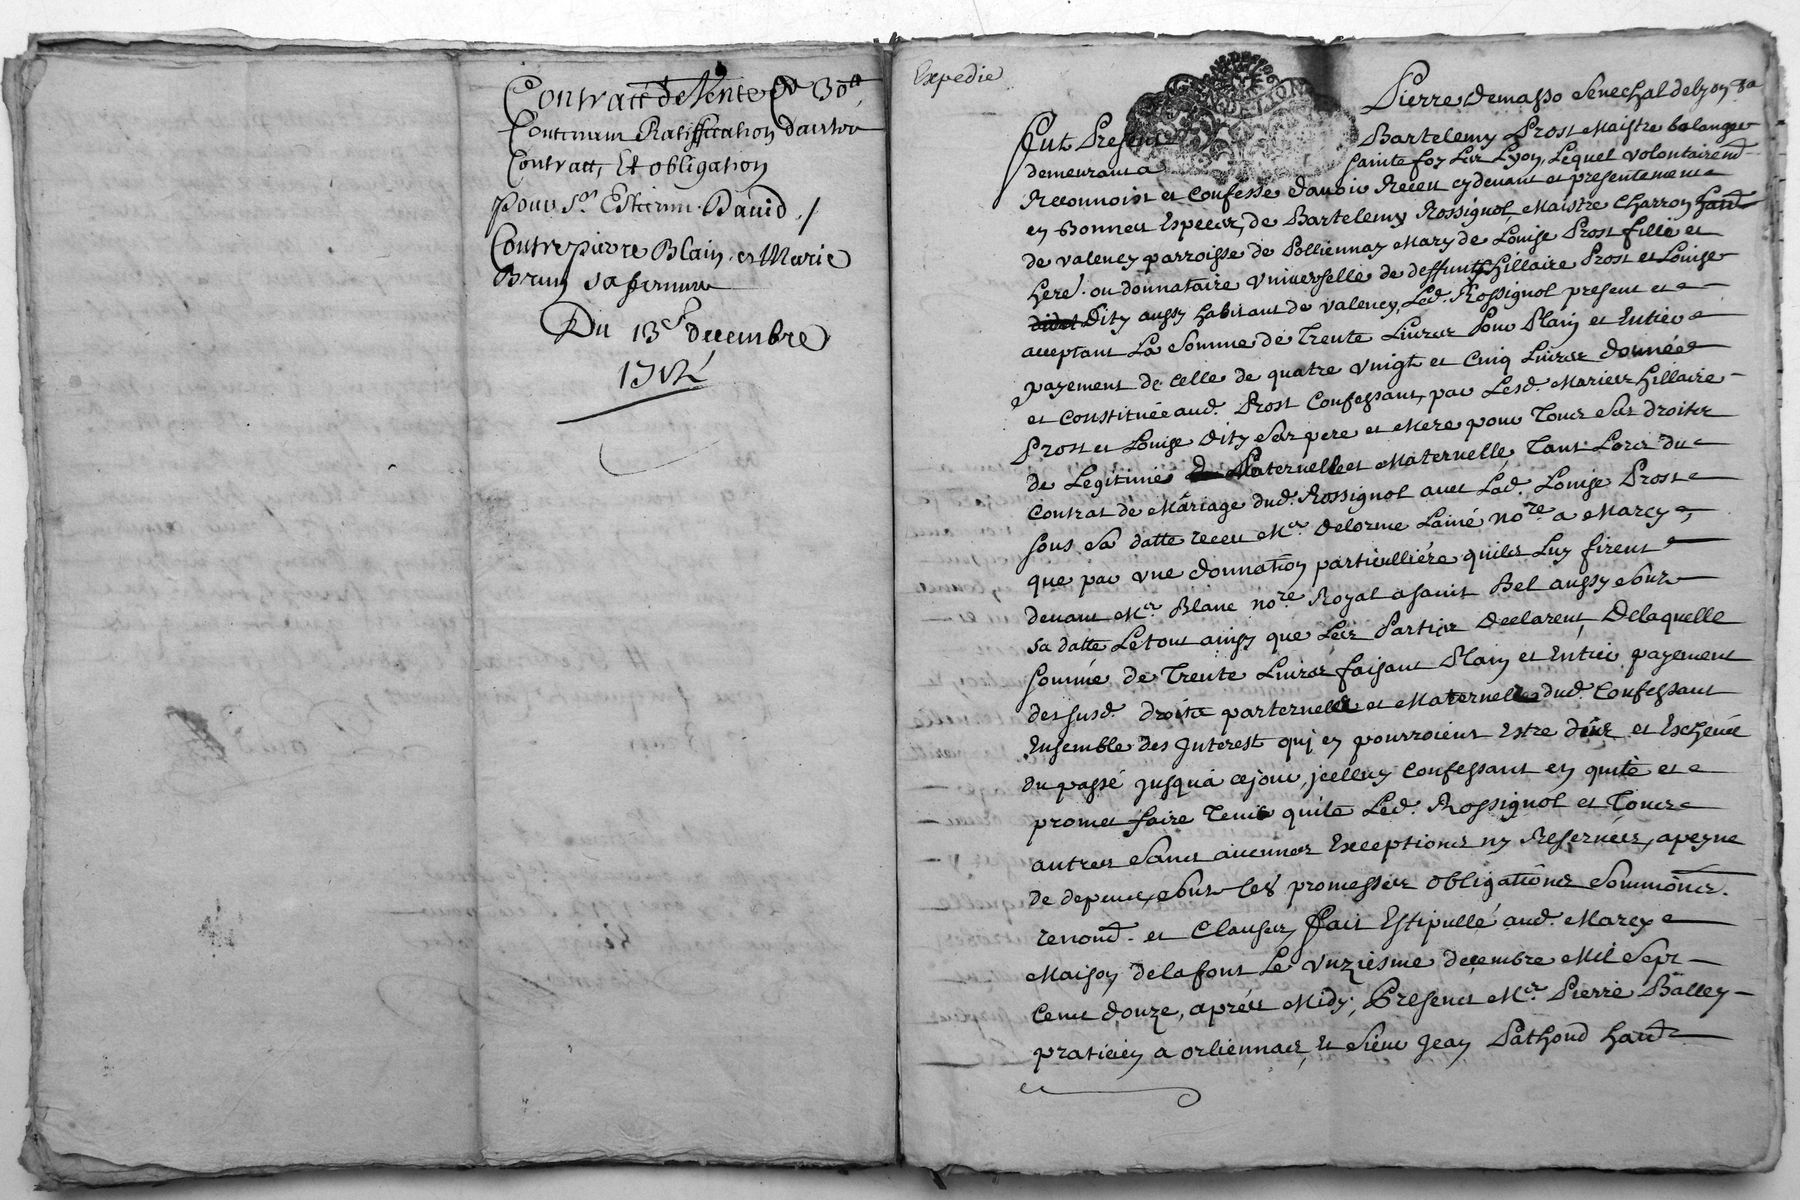 Contract de Vente De 30tt
Contenant Ratiffication d'autre
Contract, Et obligation
pour Sr. Estienne David /
Contre pierre Blain et Marie
Brun sa femme
Du 13e decembre
Expedie
Pierre Demasso Senechal de lyon &a
Fut Present Bartelemy Prost Maistre bolanger
demeurant a sainte foy Les Lyon, Lequel volontairemt.
Reconnoist et Confesse d'avoir Receu cy devant et presentement
en Bonnes Especes, de Bartelemy Rossignol Maistre Charron
de valency parroisse de Polliennay Mary de Louise Prost fille et
here. ou donnataire Vniverselle de deffunts Hillaire Prost et Louise
Dity aussy habitant de valency, Led. Rossignol present et
acceptant La Somme de Trente Livres Pour Plain et Entier
payement de Celle de quatre vingt et Cinq Livres donnée
et Constituée aud. Prost Confessant, par Lesd. Mariez Hillaire
Prost et Louise Dity ses pere et Mere pour Tous ses droits
de Legitime Paternelle et Maternelle, Tant Lors du
Contrat de Mariage dud. Rossignol avec Lad. Louise Prost
sous sa datte receu Me. Delorme Lainé nore. a Marcy,
que par vne donnation particulliére quils Luy firent
devant Me. Blanc nore. Royal a saint Bel aussy sous
sa datte Le tout ainsy que Les Parties declarent, De laquelle
somme de Trente Livres faisant Plain et Entier payement
des susd. droits parternels et Maternelles dud. Confessant
Ensemble des Interest qui en pourroient Estre deus et Escheus
du passé jusqua ce jour, jceluy Confessant en quite et
promet faire Tenir quite Led. Rossignol et Tous
autres sans aucunnes Exceptions ny Reserves, a peyne
de depens, sous les promesses obligations Sommons.
renond. et Clauses, Fait Estipullé aud. Marcy
Maison de lafont Le Vnziesme decembre Mil Sept
Cent douze, aprés Midy, Presents Me. Pierre Balley
praticien a orliennas, Et Sieur Jean Pathoud